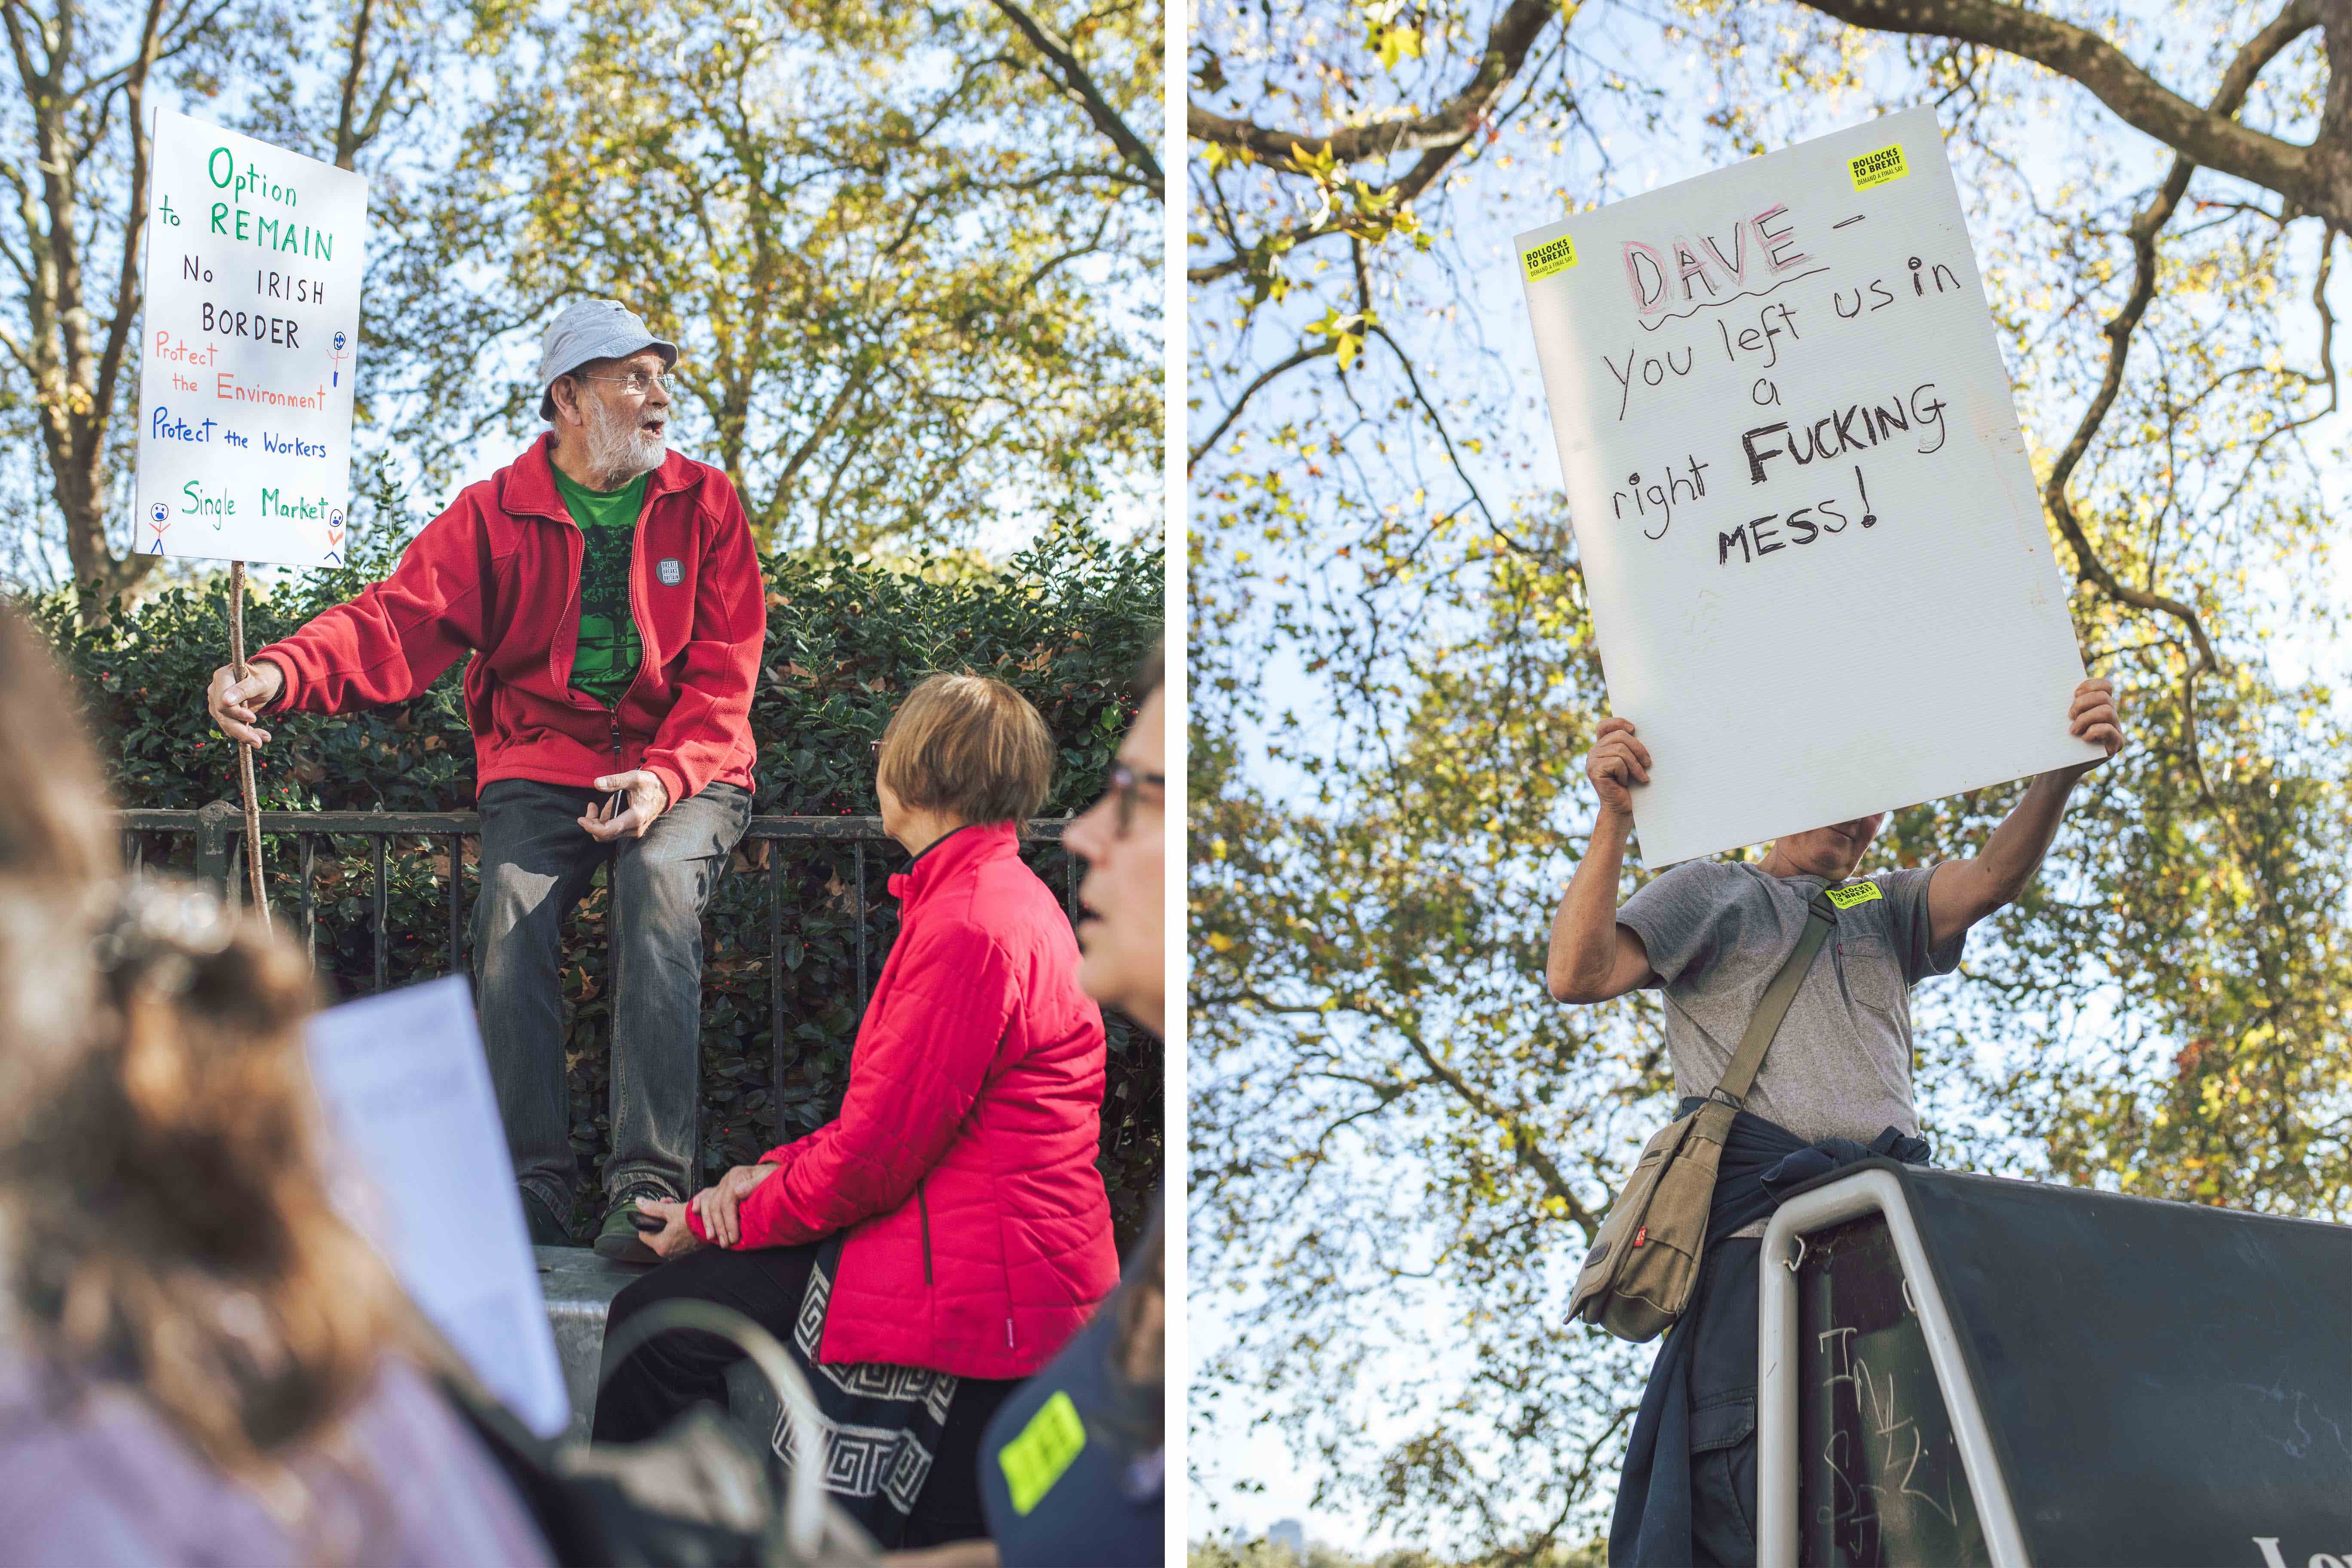 Option
to REMAIN
No IRISH
BORDER
Protect
the Environment
Protect the Workers
Single Market
BOLLOCKS
TO BREXIT
DEMAND A FINAL SAY
BOLLOCKS
TO BREXIT
DEMAND A FINAL SAY
DAVE -
You left us in
a
right FUCKING
MESS!
BOLLOCKS
TO BREXIT